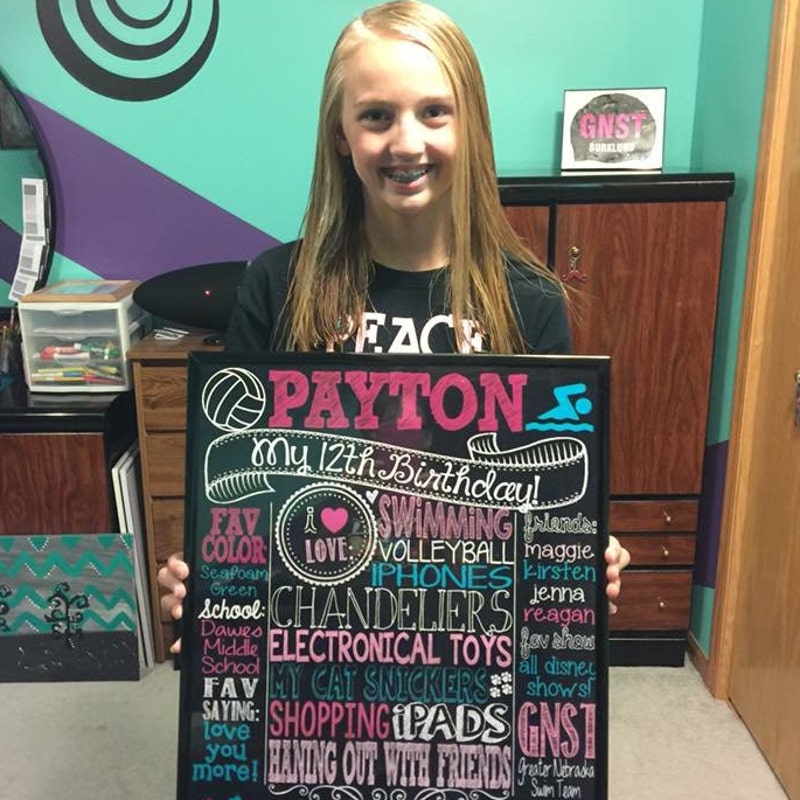 GNST
BURKLUND
PEACE
PAYTON
My 12th Birthday!
FAV
COLOR:
Seafoam
Green
School:
Dawes
Middle
School
FAV
SAYING:
love
you
more!
i ♥
LOVE:
SWIMMING
VOLLEYBALL
IPHONES
CHANDELIERS
ELECTRONICAL TOYS
MY CAT SNICKERS
SHOPPING iPADS
HANING OUT WITH FRIENDS
friends:
maggie
kirsten
jenna
reagan
fav show
all disney
shows!
GNST
Greater Nebraska
Swim Team